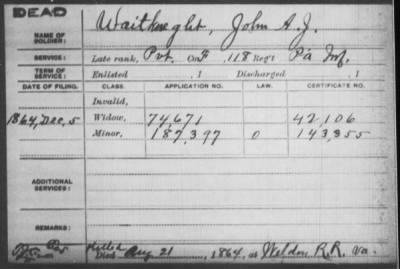 DEAD
NAME OF SOLDIER: Waitkneght, John A. J.
SERVICE: Late rank, Pvt. Co. F, 118 Reg't Pa Inf.
TERM OF SERVICE: Enlisted , 1 Discharged , 1
DATE OF FILING. CLASS. APPLICATION NO. LAW. CERTIFICATE NO.
Invalid,
1864, Dec, 5 Widow, 74,671 42,106
Minor, 187,397 0 143,355
ADDITIONAL SERVICES:
REMARKS:
Killed
Died Aug 21, 1864, at Weldon R.R. Va.